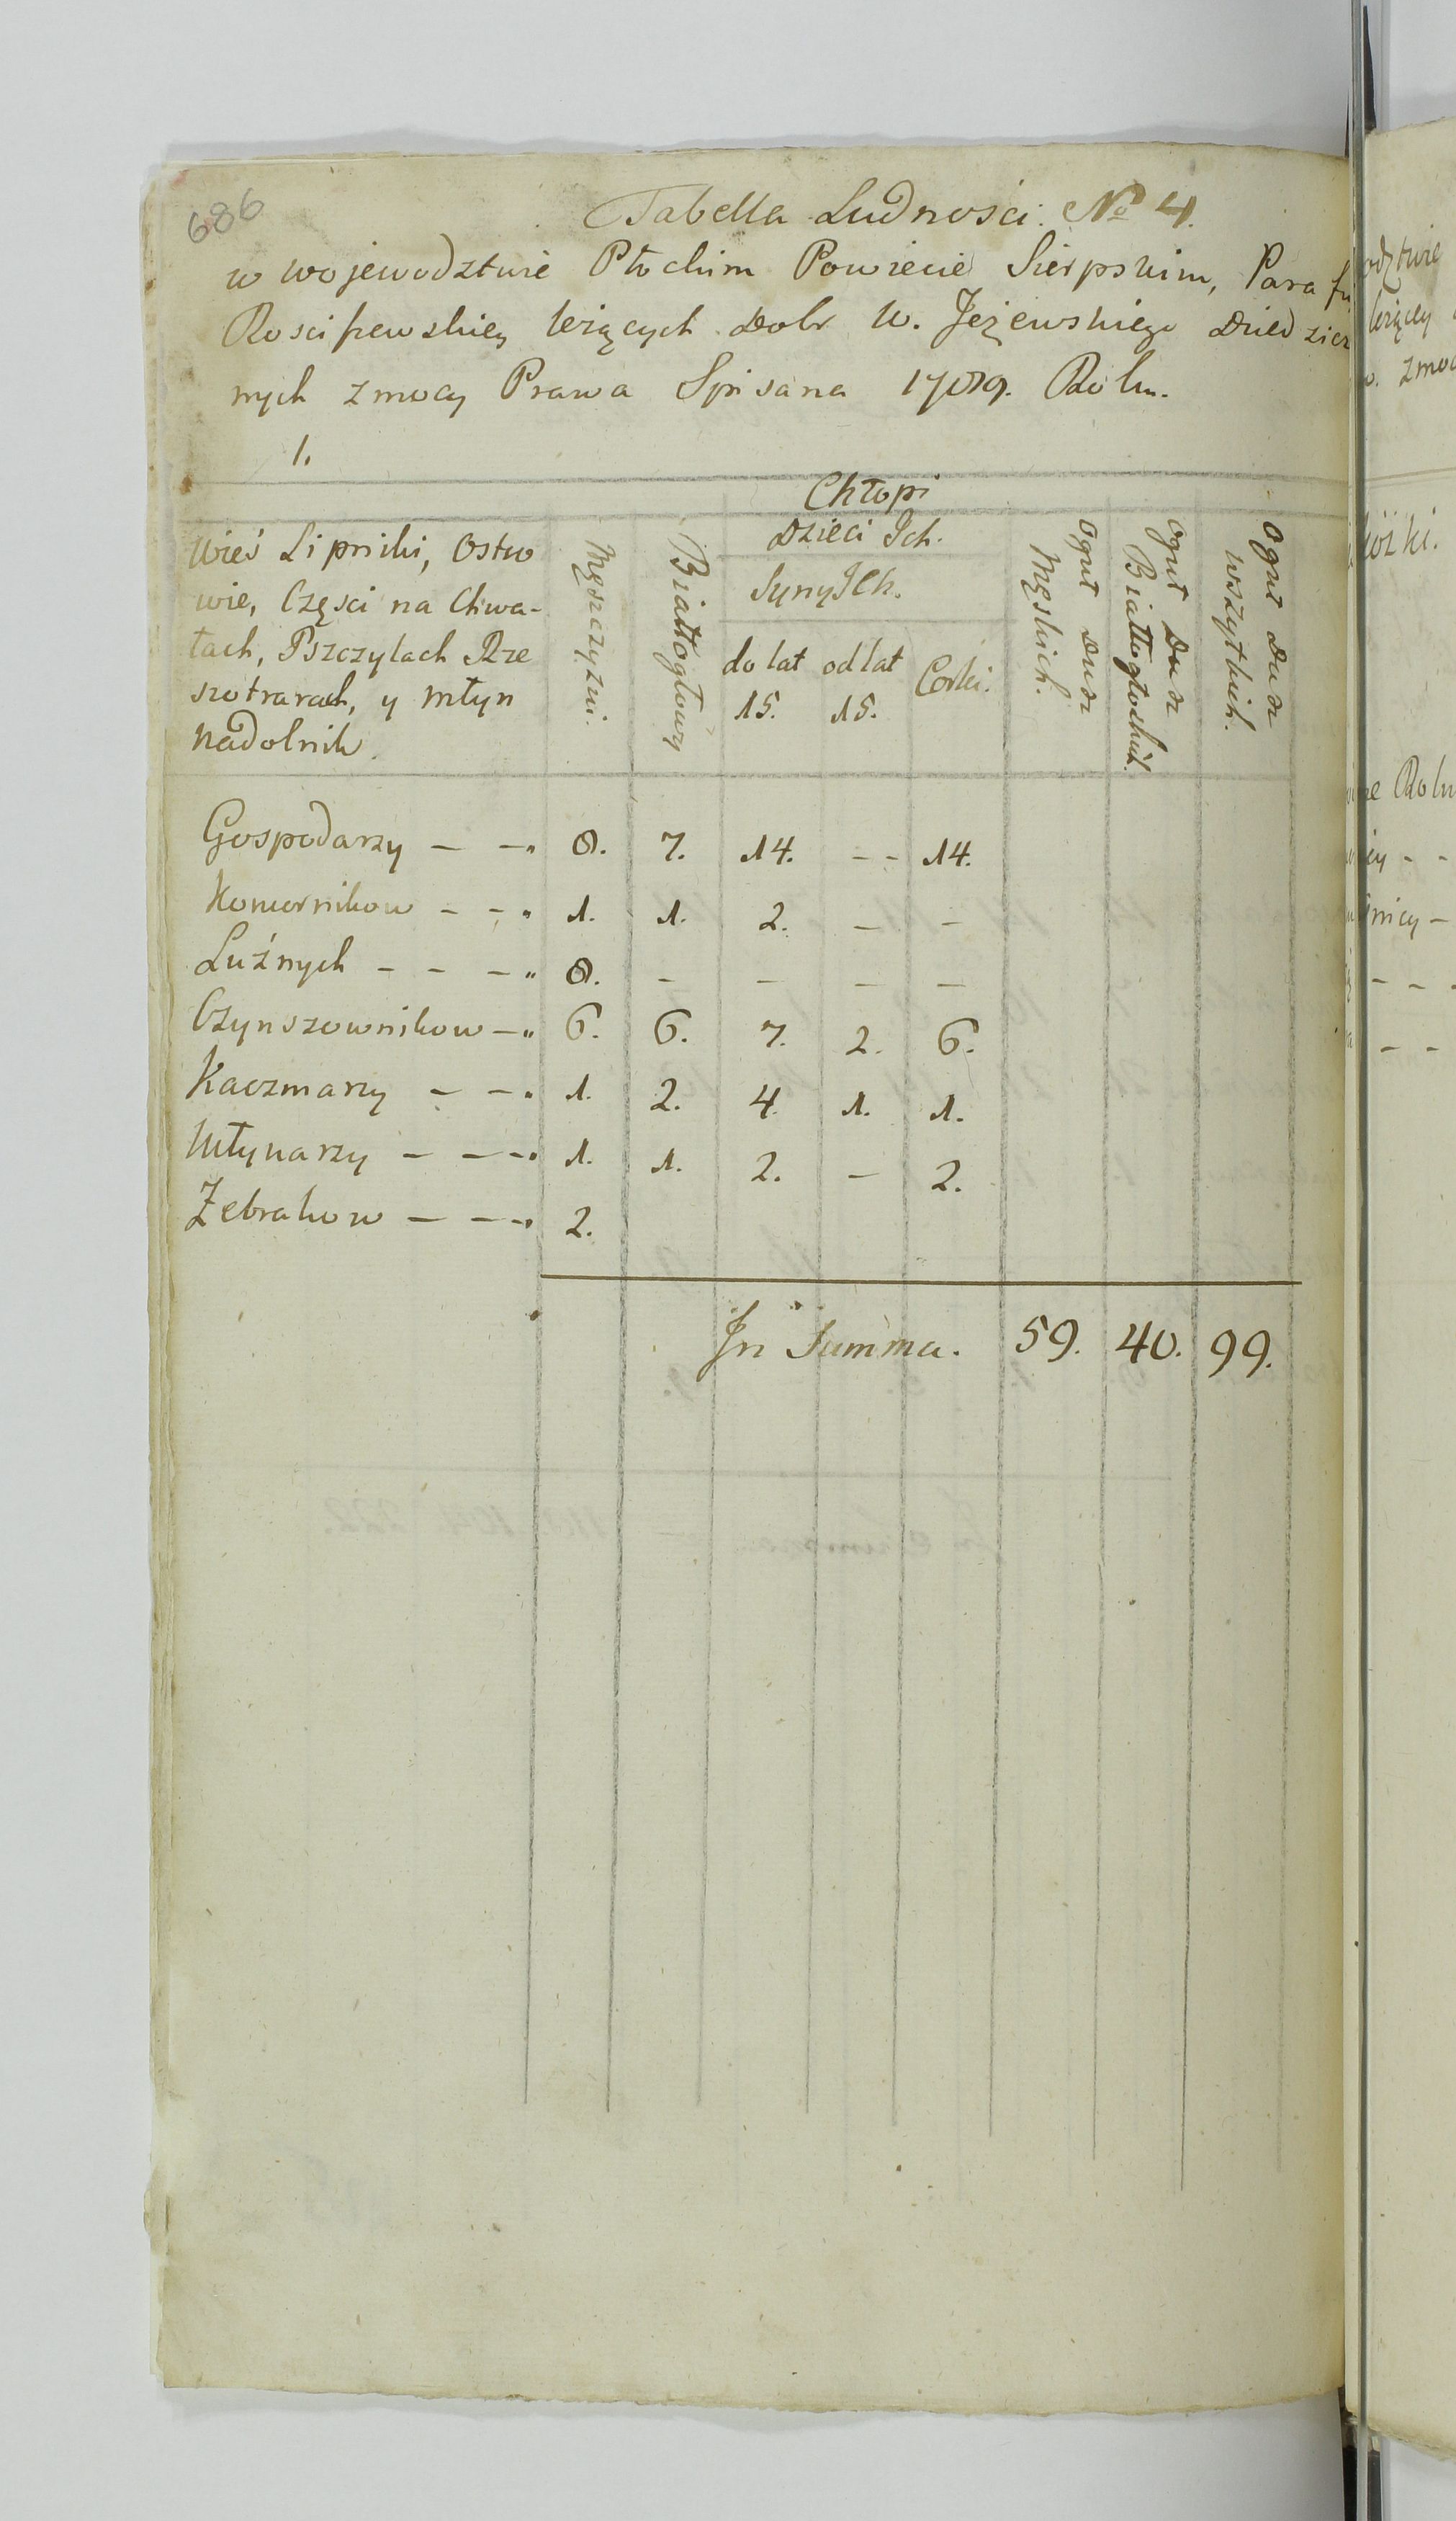 686
Tabella Ludności. No 4.
w wojewodztwie Płockim Powiecie Sierpskim, Parafii
Rosciszewskiey leżących Dobr W. Jeżewskiego Dziedzicz
nych z mocy Prawa Spisana 1789. Roku.
1.
Chłopi
Wieś Lipniki, Ostro
wie, Części na Chwa-
łach, Pszczylach Rze
szotrarach, y młyn
Nadolnik.
Męszczyzni.
Białłogłowy
Dzieci Ich.
Syny Ich.
do lat 15.
od lat 15.
Corki.
Oguł Dusz Męskich.
Oguł Dusz Białłogłoskich.
Oguł Dusz wszytkich.
Gospodarzy — —" 8. 7. 14. - - 14.
Komornikow - - " 1. 1. 2. — —
Luźnych - - —" 8. - — — —
Czynszownikow —" 6. 6. 7. 2. 6.
Kaczmarzy — —" 1. 2. 4. 1. 1.
Młynarzy — — —" 1. 1. 2. — 2.
Zebrakow — — —" 2.
In Summa. 59. 40. 99.